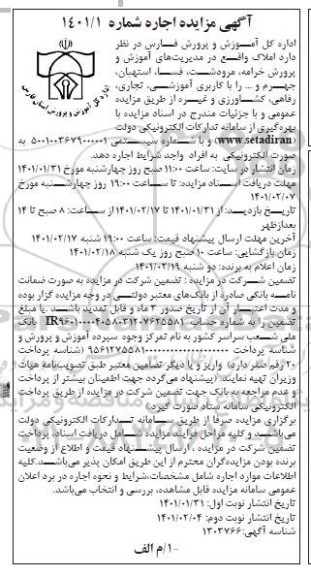 آگهی مزایده اجاره شماره ۱۴۰۱/۱
اداره کل آمـوزش و پرورش فـارس در نظر
دارد املاک واقـع در مدیریت‌های آموزش و
پرورش خرامه، مرودشت، فسـا، استهبان،
جهـرم و ... را با کاربری آموزشـی، تجاری،
رفاهی، کشـاورزی و غیـره از طریق مزایده
عمومی و با جزئیات مندرج در اسناد مزایده با
بهره‌گیری از سامانه تدارکات الکترونیکی دولت
(www.setadiran) و با شمـاره سیستمی ۵۰۰۱۰۰۳۶۷۹۰۰۰۰۰۱ به
صورت الکترونیکی به افراد واجد شرایط اجاره دهد.
زمان انتشار در سایت: ساعت ۱۱:۰۰ صبح روز چهارشنبه مورخ ۱۴۰۱/۰۱/۳۱
مهلت دریافت اسـناد مزایده: تا سـاعت ۱۹:۰۰ روز چهارشـنبه مورخ
۱۴۰۱/۰۲/۰۷
تاریـخ بازدیـد: از ۱۴۰۱/۰۱/۳۱ تا ۱۴۰۱/۰۲/۱۷ از سـاعت: ۸ صبح تا ۱۴
بعدازظهر
آخرین مهلت ارسال پیشنهاد قیمت: ساعت ۱۹:۰۰ شنبه ۱۴۰۱/۰۲/۱۷
زمان بازگشایی: ساعت ۱۰ صبح روز یک شنبه ۱۴۰۱/۰۲/۱۸
زمان اعلام به برنده: دو شنبه ۱۴۰۱/۰۲/۱۹
تضمین شـرکت در مزایده : تضمین شرکت در مزایده به صورت ضمانت
نامـه بانکی صادره از بانک‌های معتبر دولتی در وجه مزایده گزار بوده
و مدت اعتبـار آن از تاریخ صدور ۳ ماه و قابل تمدید باشـد .یا مبلغ
تضمین را به شماره حساب بانک
ملی شعب سراسر کشور به نام تمرکز وجوه سپرده آموزش و پرورش و
شناسه پرداخت (شناسه پرداخت
۲۰ رقم صفر دارد) واریز و یا دیگر تضامین معتبر طبق تصویب‌نامه هیات
وزیران تهیه نمایند. (پیشنهاد می‌گردد جهت اطمینان بیشتر از پرداخت
و عدم مراجعه به بانک جهت تضمین شرکت در مزایده از طریق پرداخت
الکترونیکی سامانه ستاد صورت گیرد)
برگزاری مزایده صرفا از طریق سـامانه تـدارکات الکترونیکی دولت
می‌باشـد و کلیه مراحل فرآیند مزایده شـامل دریافت اسناد، پرداخت
تضمین شـرکت در مزایده ، ارسـال پیشـنهاد قیمت و اطلاع از وضعیت
برنده بودن مزایده‌گران محترم از این طریق امکان پذیر می‌باشـد.کلیه
اطلاعات موارد اجاره شامل مشخصات،شرایط و نحوه اجاره در برد اعلان
عمومی سامانه مزایده قابل مشاهده، بررسی و انتخاب می‌باشد.
تاریخ انتشار نوبت اول: ۱۴۰۱/۰۱/۳۱
تاریخ انتشار نوبت دوم: ۱۴۰۱/۰۲/۰۴
شناسه آگهی:۱۳۰۳۷۶۶
۱۰/م الف